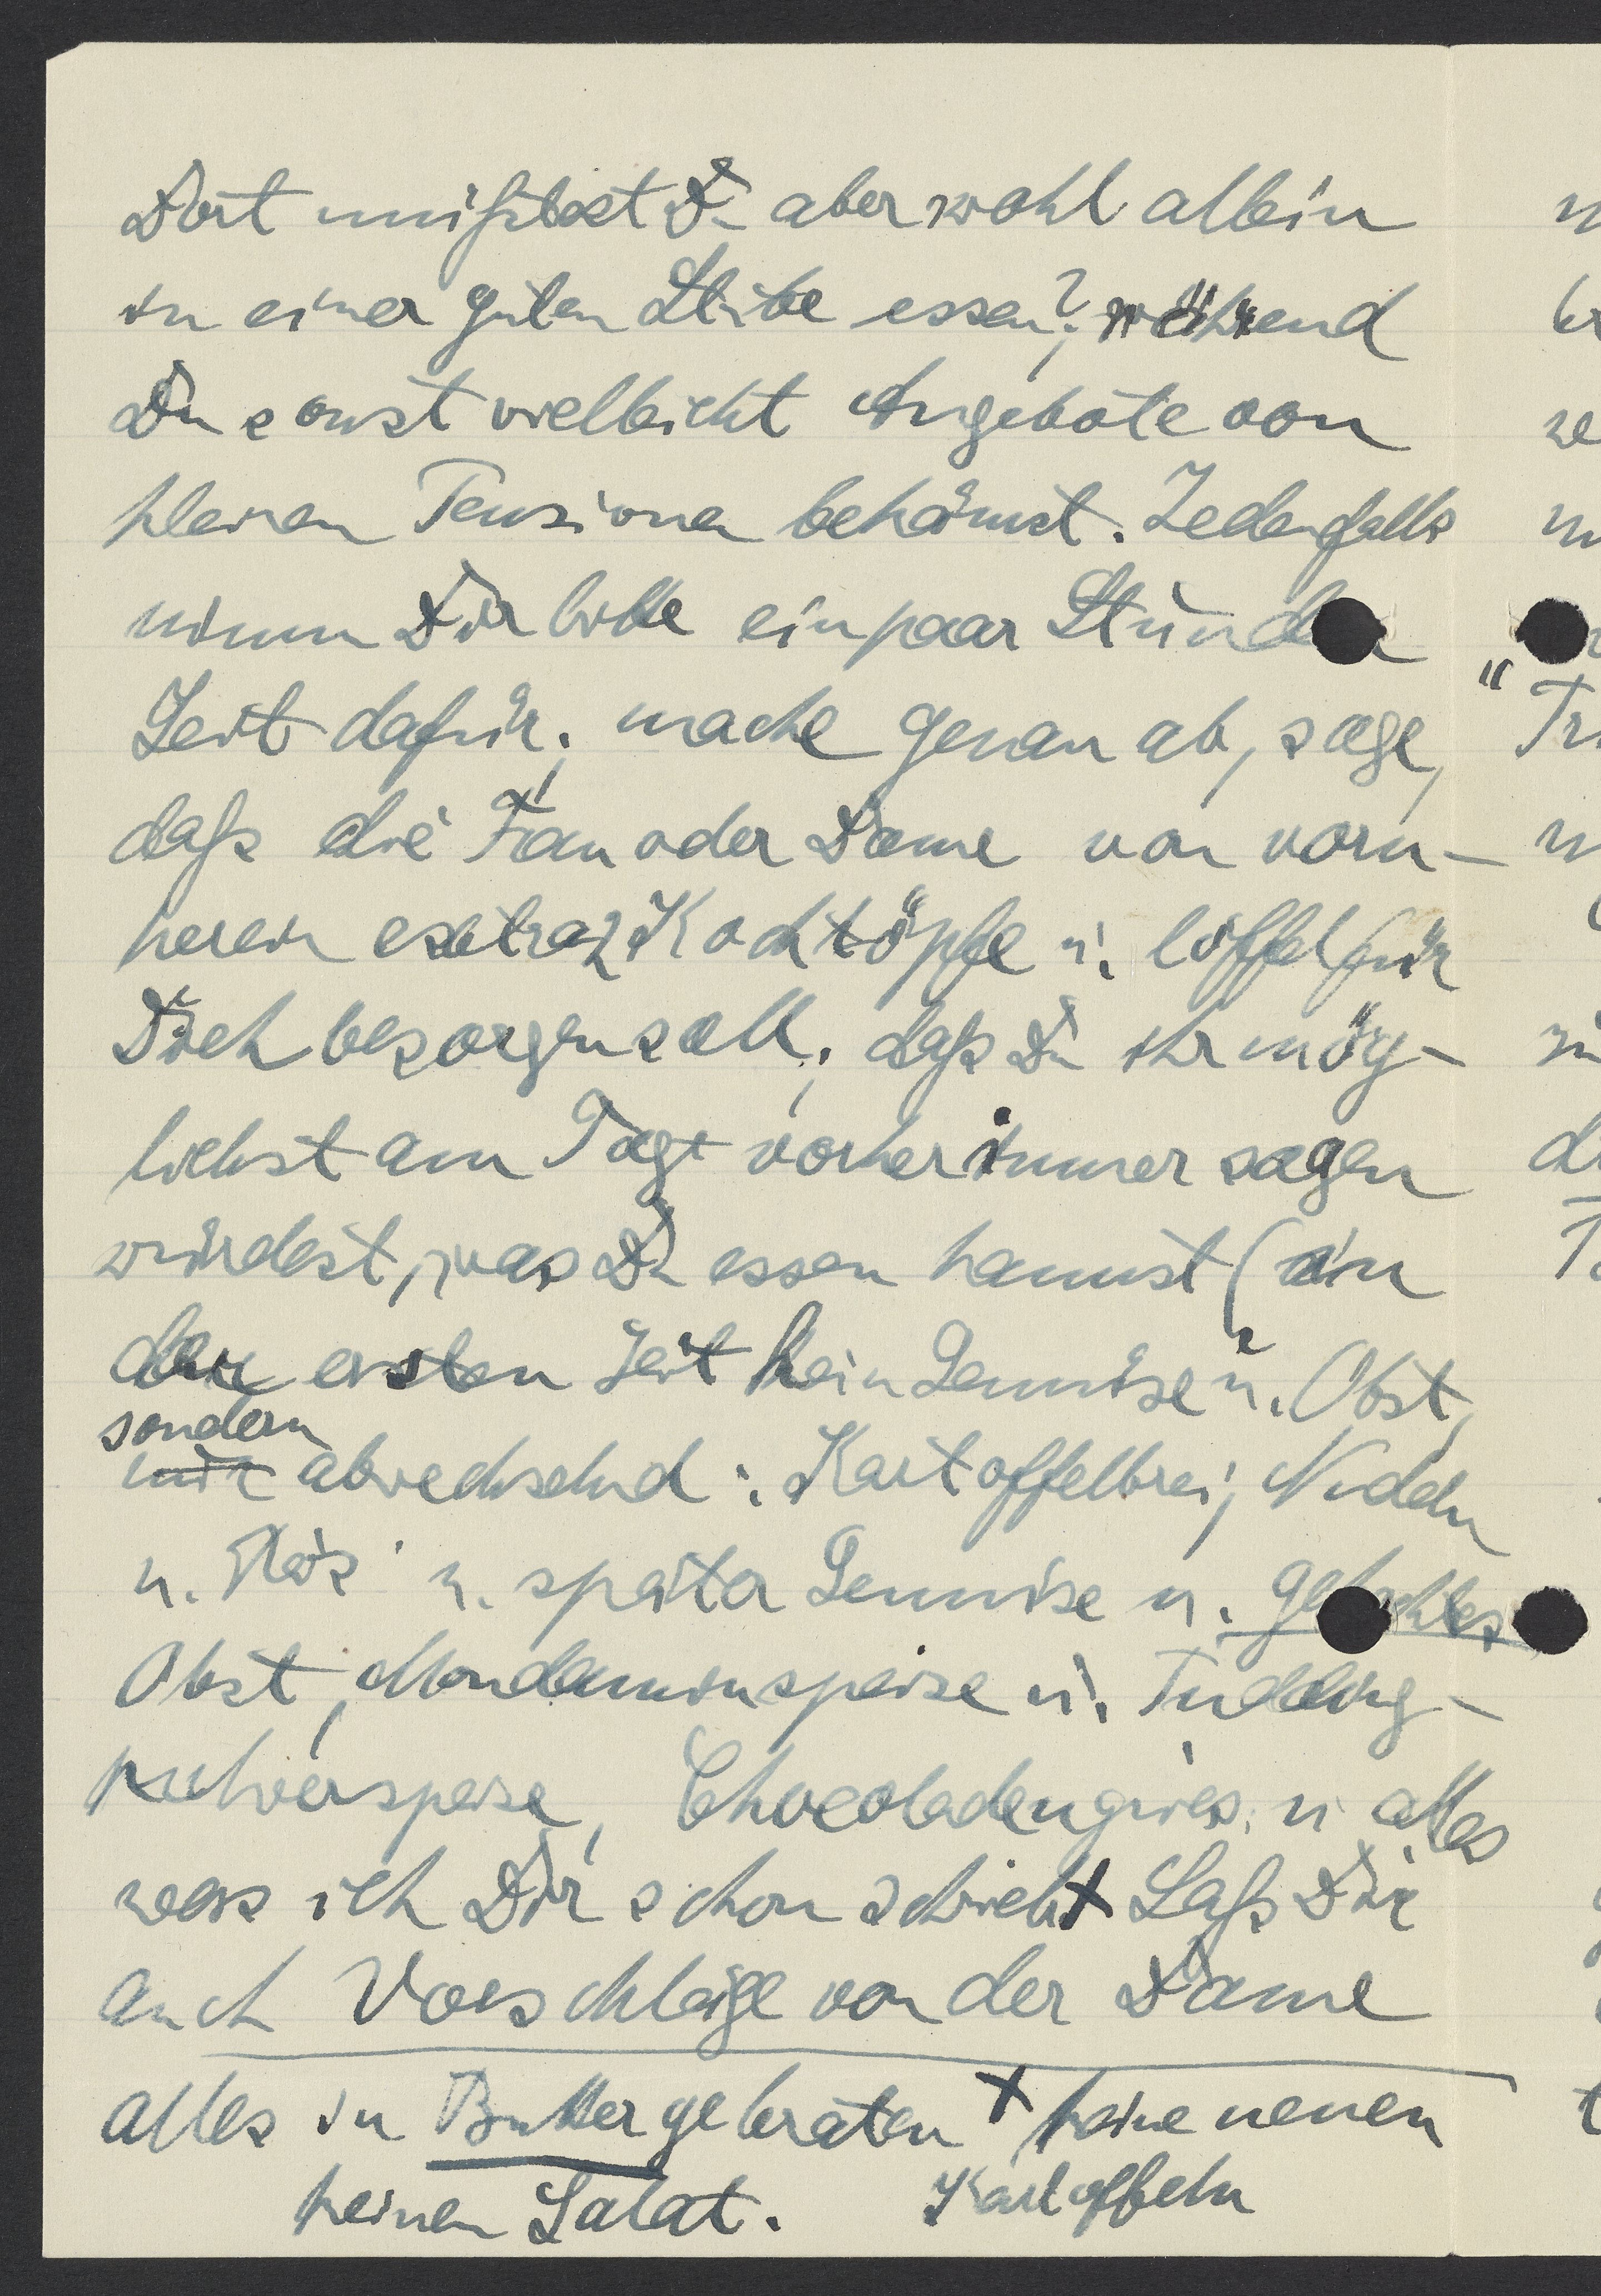 Dort müßtest Du aber wohl allein
in einer guten Stube essen?, während
Du sonst vielleicht Angebote von
kleinen Pensionen bekämst. Jedenfalls
nimm Dir bitte ein paar Stunden
Zeit dafür; mache genau ab, sage,
daß die Frau oder Dame von vorn-
herein extra 2 Kochtöpfe u. Löffel für
Dich besorgen soll; daß Du ihr mög-
lichst am Tage vorher immer sagen
würdest, was Du essen kannst (in
der ersten Zeit kein Gemüse u. Obst,
sondern
nur abwechselnd: Kartoffelbrei, Nudeln
u. Reis u. später Gemüse u. gekochtes
Obst, Mondaminspeise u. Pudding-
pulverspeise, Chocoladengries, u alles
was ich Dir schon schrieb + Laß Dir
auch Vorschläge von der Dame
alles in Butter gebraten + keine neuen
keinen Salat. Kartoffeln